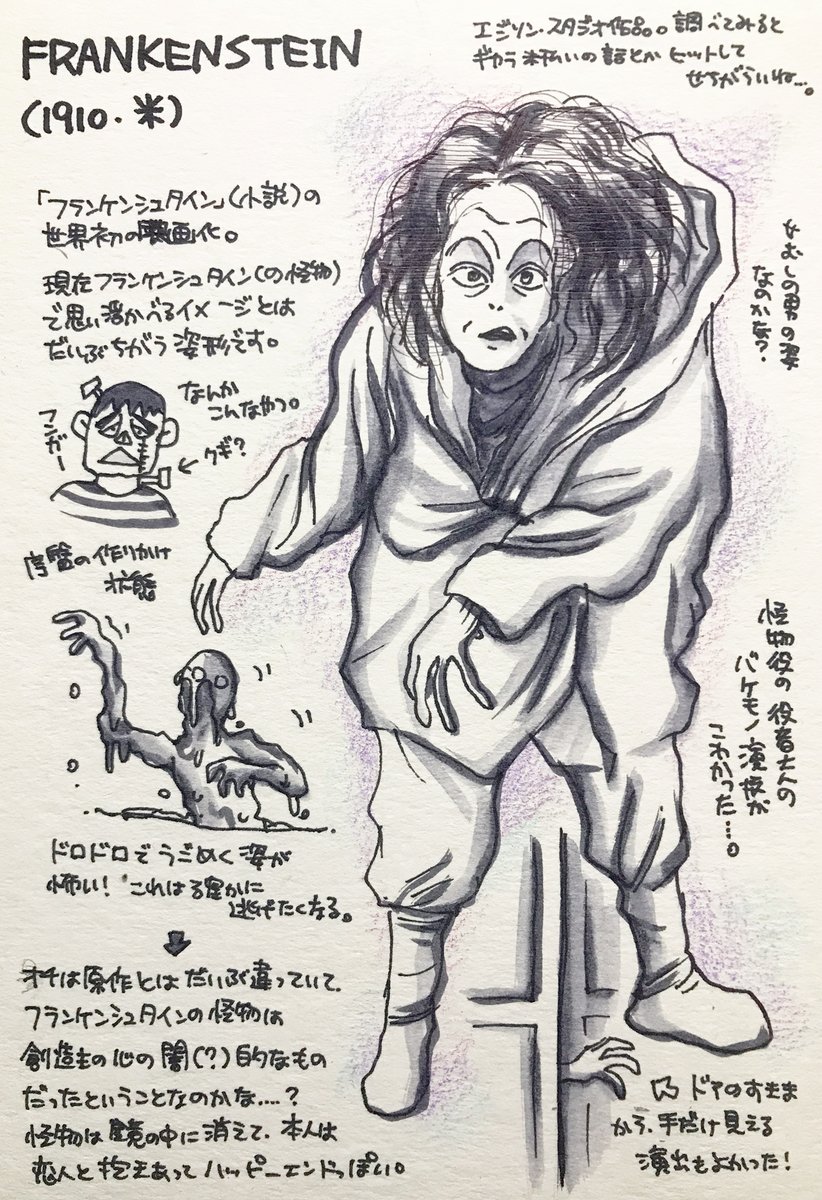 FRANKENSTEIN
(1910・米)
エジソン・スタジオ作品。調べてみると
ギャラ未払いの話とかヒットして
せちがらいね…。
「フランケンシュタイン」(小説)の
世界初の映画化。
現在フランケンシュタイン(の怪物)
で思い浮かべるイメージとは
だいぶちがう姿形です。
なんか
こんなやつ。
フンガー
←クギ?
せむしの男の姿
なのかな?
序盤の作りかけ
状態
怪物役の役者さんの
バケモノ演技が
こわかった…。
ドロドロでうごめく姿が
怖い!これは確かに
逃げたくなる。
オチは原作とはだいぶ違っていて、
フランケンシュタインの怪物は
創造主の心の闇(?)的なもの
だったということなのかな….?
怪物は鏡の中に消えて、本人は
恋人と抱きあってハッピーエンドっぽい。
ドアのすきま
から、手だけ見える
演出もよかった!